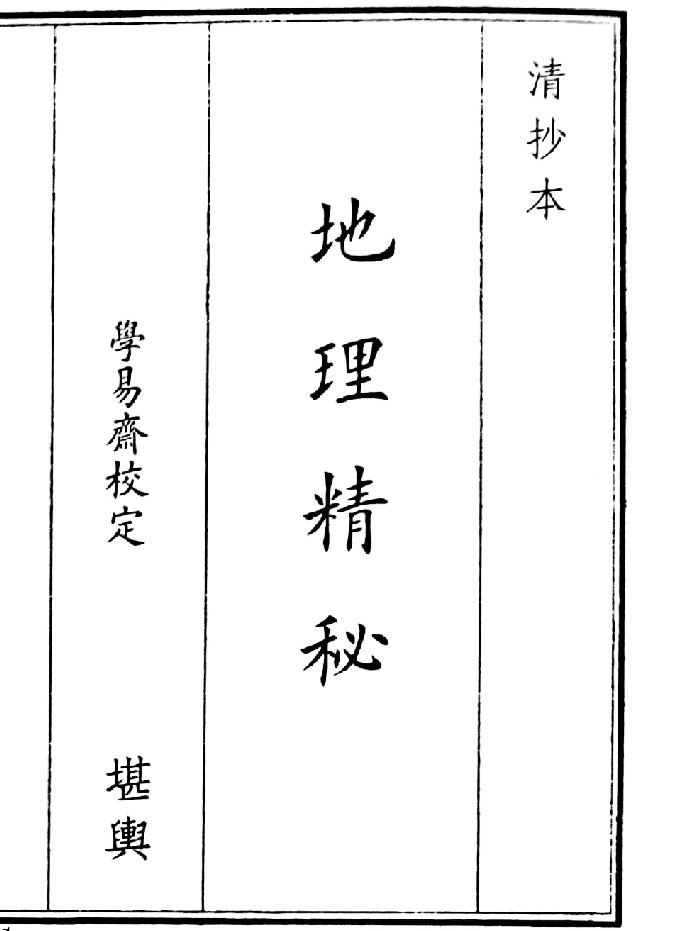 清抄本
地理精秘
學易齋校定
堪輿